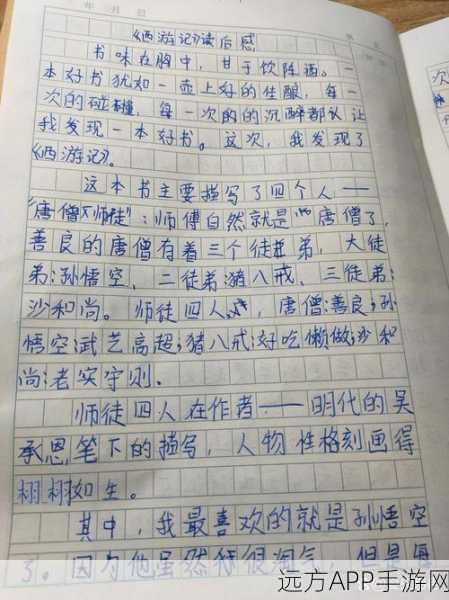 年 月 日
《西游记》读后感
书味在胸中，甘于饮陈酒。一
本好书犹如一壶上好的佳酿，每一
次的碰撞，每一次的的沉醉都认让
我发现一本好书。这次，我发现了
《西游记》。
这本书主要描写了四个人——
“唐僧师徒”：师傅自然就是“唐僧了，
善良的唐僧有着三个徒弟，大徒
弟：孙悟空、二徒弟：猪八戒、三徒弟：
沙和尚。师徒四人，唐僧：善良；孙
悟空：武艺高超；猪八戒：好吃懒做；沙和
尚：老实守则。
师徒四人在作者——明代的吴
承恩笔下的描写，人物性格刻画得
栩栩如生。
其中，我最喜欢的就是孙悟空
了。因为他虽然很淘气，但是每
次
远方APP手游网